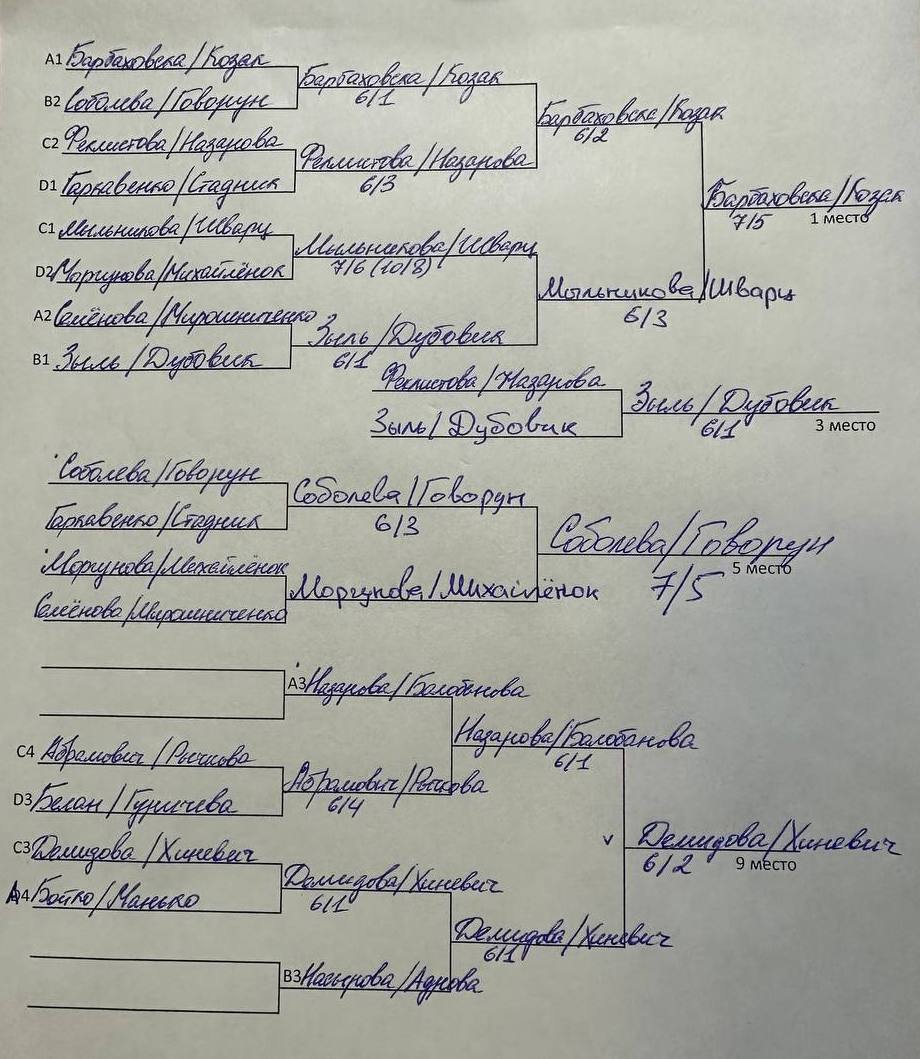 A1 Барбаховска/Козак
Барбаховска/Козак
6/1
B2 Соболева/Говорун
Барбаховска/Козак
6/2
C2 Феклистова/Назарова
Феклистова/Назарова
6/3
D1 Гаркавенко/Стадник
Барбаховска/Козак
7/5 1 место
C1 Мыльникова/Шварц
Мыльникова/Шварц
7/6 (10/8)
D2 Моргунова/Михайлёнок
Мыльникова/Шварц
6/3
A2 Семёнова/Мирошниченко
Зыль/Дубовик
6/1
B1 Зыль/Дубовик
Феклистова/Назарова
Зыль/Дубовик
6/1 3 место
Зыль/Дубовик
Соболева/Говорун
Соболева/Говорун
6/3
Гаркавенко/Стадник
Соболева/Говорун
7/5 5 место
Моргунова/Михайлёнок
Моргунова/Михайлёнок
Семёнова/Мирошниченко
A3 Назарова/Балобанова
Назарова/Балобанова
6/1
C4 Абрамович/Рычкова
Абрамович/Рычкова
6/4
D3 Белан/Гуричева
Демидова/Хиневич
6/2 9 место
C3 Демидова/Хиневич
Демидова/Хиневич
6/1
D4 Бойко/Манько
Демидова/Хиневич
6/1
B3 Насырова/Аднова